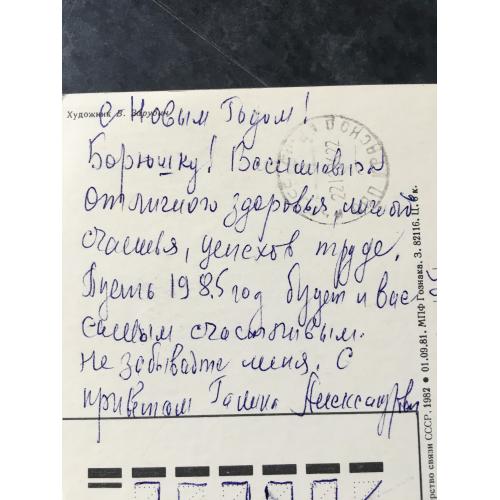 Художник В. Зарубин
С Новым Годом!
Борюшку! Василиевича
отличного здоровья, много
счастья, успехов труде.
Пусть 1985 год будет и вас
самым счастливым.
Не забывайте меня. С
приветом Галина Александров
01.09.81. МПФ Гознака. З. 82116. Ц. 6 к.
рство связи СССР. 1982